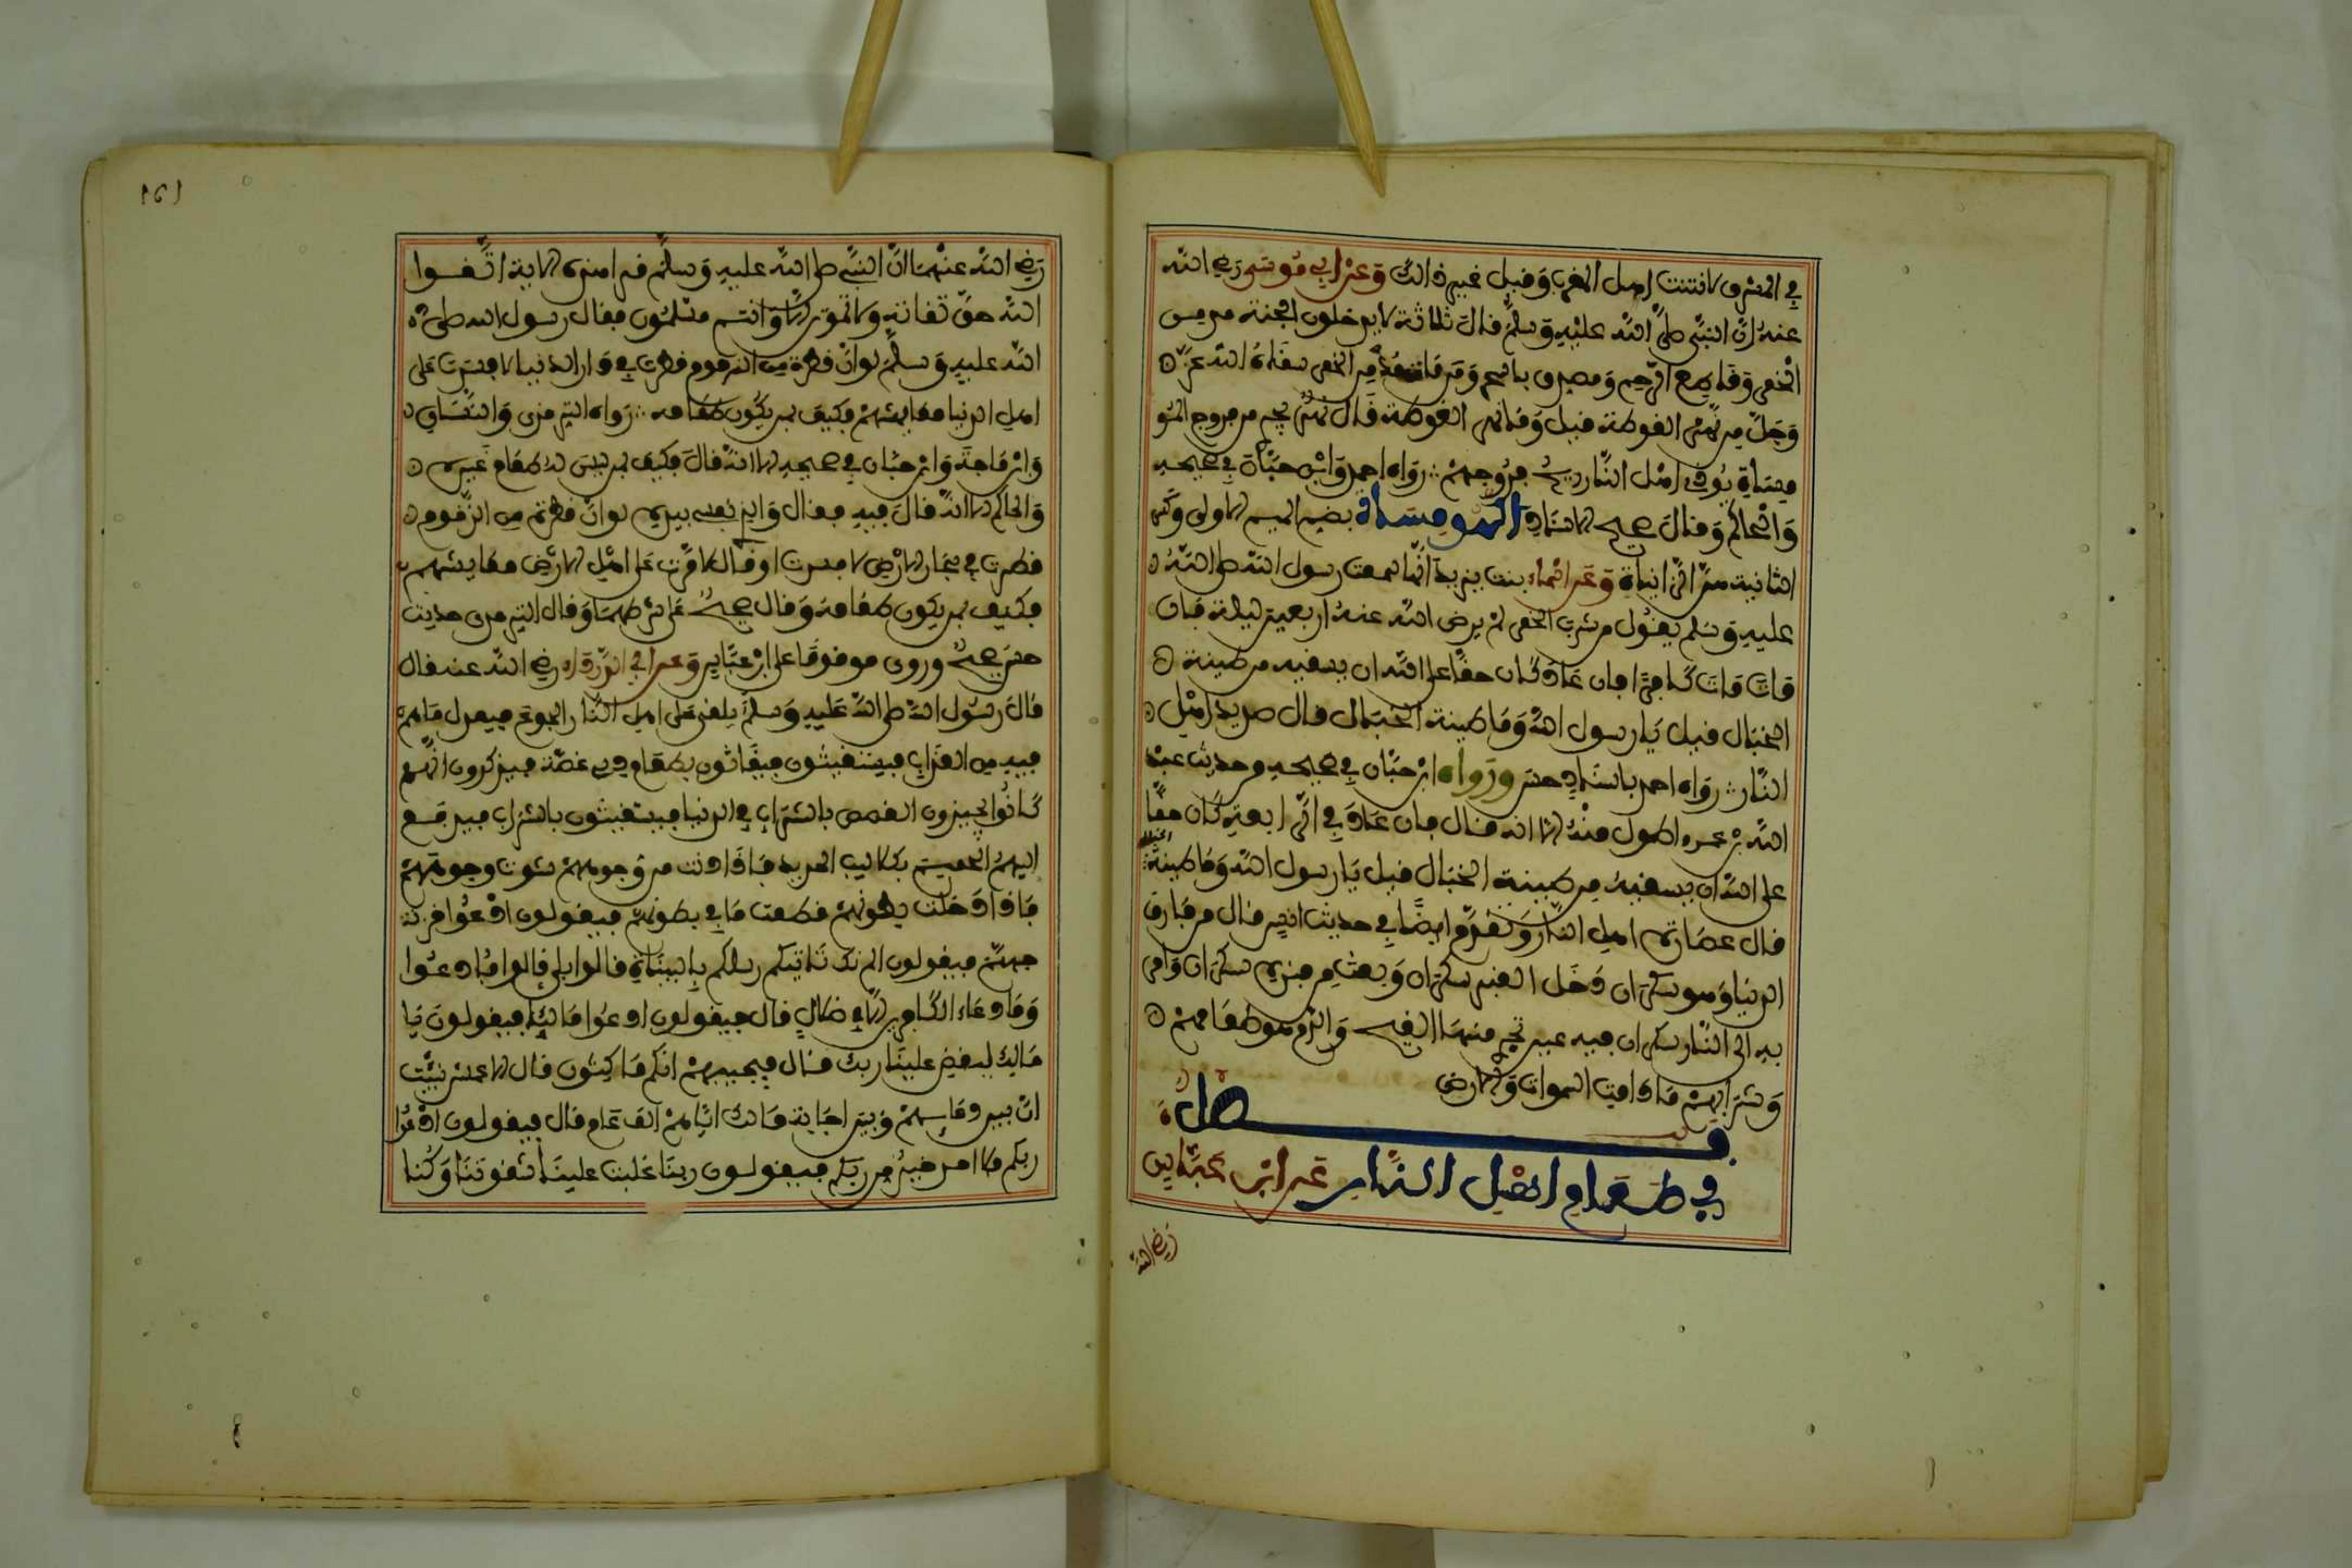 في المشرق لانتنت اهل المغرب وقيل غير ذالك وعن ابي موسى رضي الله
عنه ان النبي صلى الله عليه وسلم قال ثلاثة لا يدخلون الجنة مدمن
الخمر وقاطع الرحيم ومصدق بالسحر ومن مات مدمن الخمر سقاه الله عز
وجل من نهر الغوطة قيل وما نهر الغوطة قال نهر يجري من فروج المو
مساة يوذي اهل النار ريح فروجهم رواه احمد وابن حبان في صحيحه
والحاكم وقال صحيح الاسناد المومساة بضم الميم الاولى وكسر
الثانية هن الزانياة وعن اسماء بنت يزيد انها سمعت رسول الله صلى الله
عليه وسلم يقول من شرب الخمر لم يرض الله عنه اربعين ليلة فان
مات مات كافرا فان عاد كان حقا على الله ان يسقيه من طينة
الخبال قيل يا رسول الله وما طينة الخبال قال صديد اهل
النار رواه احمد باسناد حسن ورواه ابن حبان في صحيحه من حديث عبد
الله بن عمرو اطول منه الا انه قال فان عاد في الرابعة كان حقا
على الله ان يسقيه من طينة الخبال قيل يا رسول الله وما طينة الخبال
قال عصارة اهل النار وتقدم ايضا في حديث انس قال من فارق
الدنيا وهو سكران دخل القبر سكران وبعث من قبره سكران وامر
به الى النار سكران فيه عين تجري منها القيح والدم هو طعامهم
وشرابهم ما دامت السموات والارض
فصل
في طعام اهل النار عن ابن عباس
رضي الله
١٥١
رضي الله عنهما ان النبي صلى الله عليه وسلم قرا هذه الاية اتقوا
الله حق تقاته ولا تموتن الا وانتم مسلمون فقال رسول الله صلى
الله عليه وسلم لو ان قطرة من الزقوم قطرت في دار الدنيا لافسدت على
اهل الدنيا معايشهم فكيف بمن يكون طعامه رواه الترمذي والنساي
وابن ماجة وابن حبان في صحيحه الا انه قال فكيف بمن ليس له طعام غيره
والحاكم الا انه قال فيه فقال والذي نفسي بيده لو ان قطرة من الزقوم
قطرت في بحار الارض لافسدت او قال لامرت على اهل الارض معايشهم
فكيف بمن يكون طعامه وقال صحيح على شرطهما وقال الترمذي حديث
حسن صحيح وروي موقوفا على ابن عباس وعن ابي الدرداء رضي الله عنه قال
قال رسول الله صلى الله عليه وسلم يلقى على اهل النار الجوع فيعدل ما هم
فيه من العذاب فيستغيثون فيغاثون بطعام ذي غصة فيذكرون انهم
كانوا يجيزون الغصص بالشراب في الدنيا فيستغيثون بالشراب فيرفع
اليهم الحميم بكلاليب الحديد فاذا دنت من وجوههم شوت وجوههم
فاذا دخلت بطونهم قطعت ما في بطونهم فيقولون ادعوا خزنة
جهنم فيقولون الم تك تاتيكم رسلكم بالبيناة قالوا بلى قالوا فادعوا
وما دعاء الكافرين الا في ضلال قال فيقولون ادعوا مالكا فيقولون يا
مالك ليقض علينا ربك قال فيجيبهم انكم ماكثون قال الاعمش نبئت
ان بين دعايهم وبين اجابة مالك اياهم الف عام قال فيقولون ادعوا
ربكم فلا احد خير من ربكم فيقولون ربنا غلبت علينا شقوتنا وكنا